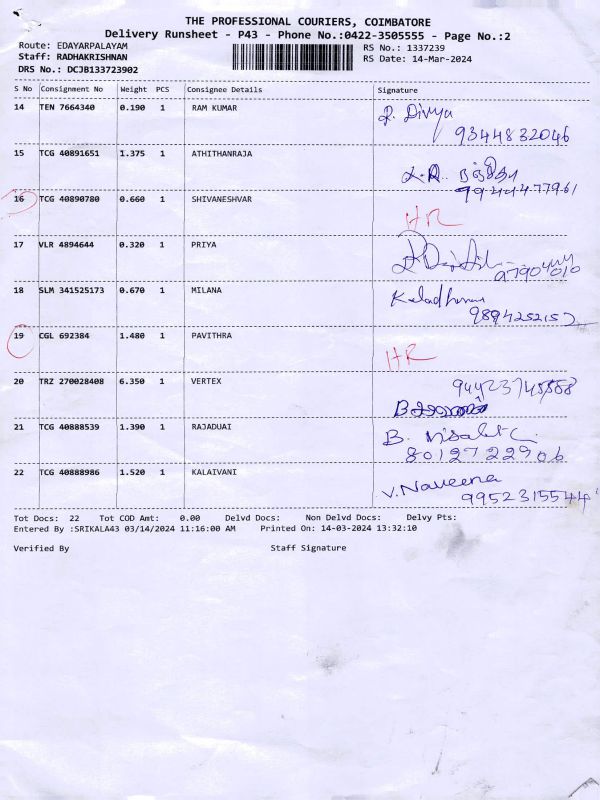 THE PROFESSIONAL COURIERS, COIMBATORE
Delivery Runsheet - P43 - Phone No.:0422-3505555 - Page No.:2
Route: EDAYARPALAYAM RS No.: 1337239
Staff: RADHAKRISHNAN RS Date: 14-Mar-2024
DRS No.: DCJB133723902
S No Consignment No Weight PCS Consignee Details Signature
14 TEN 7664340 0.190 1 RAM KUMAR R. Divya
9344832046
15 TCG 40891651 1.375 1 ATHITHANRAJA
16 TCG 40890780 0.660 1 SHIVANESHVAR HR
17 VLR 4894644 0.320 1 PRIYA
18 SLM 341525173 0.670 1 MILANA
9894252152
19 CGL 692384 1.480 1 PAVITHRA HR
20 TRZ 270028408 6.350 1 VERTEX
21 TCG 40888539 1.390 1 RAJADUAI B.
8012722906
22 TCG 40888986 1.520 1 KALAIVANI V.Naveena
9952315544
Tot Docs: 22 Tot COD Amt: 0.00 Delvd Docs: Non Delvd Docs: Delvy Pts:
Entered By :SRIKALA43 03/14/2024 11:16:00 AM Printed On: 14-03-2024 13:32:10
Verified By Staff Signature